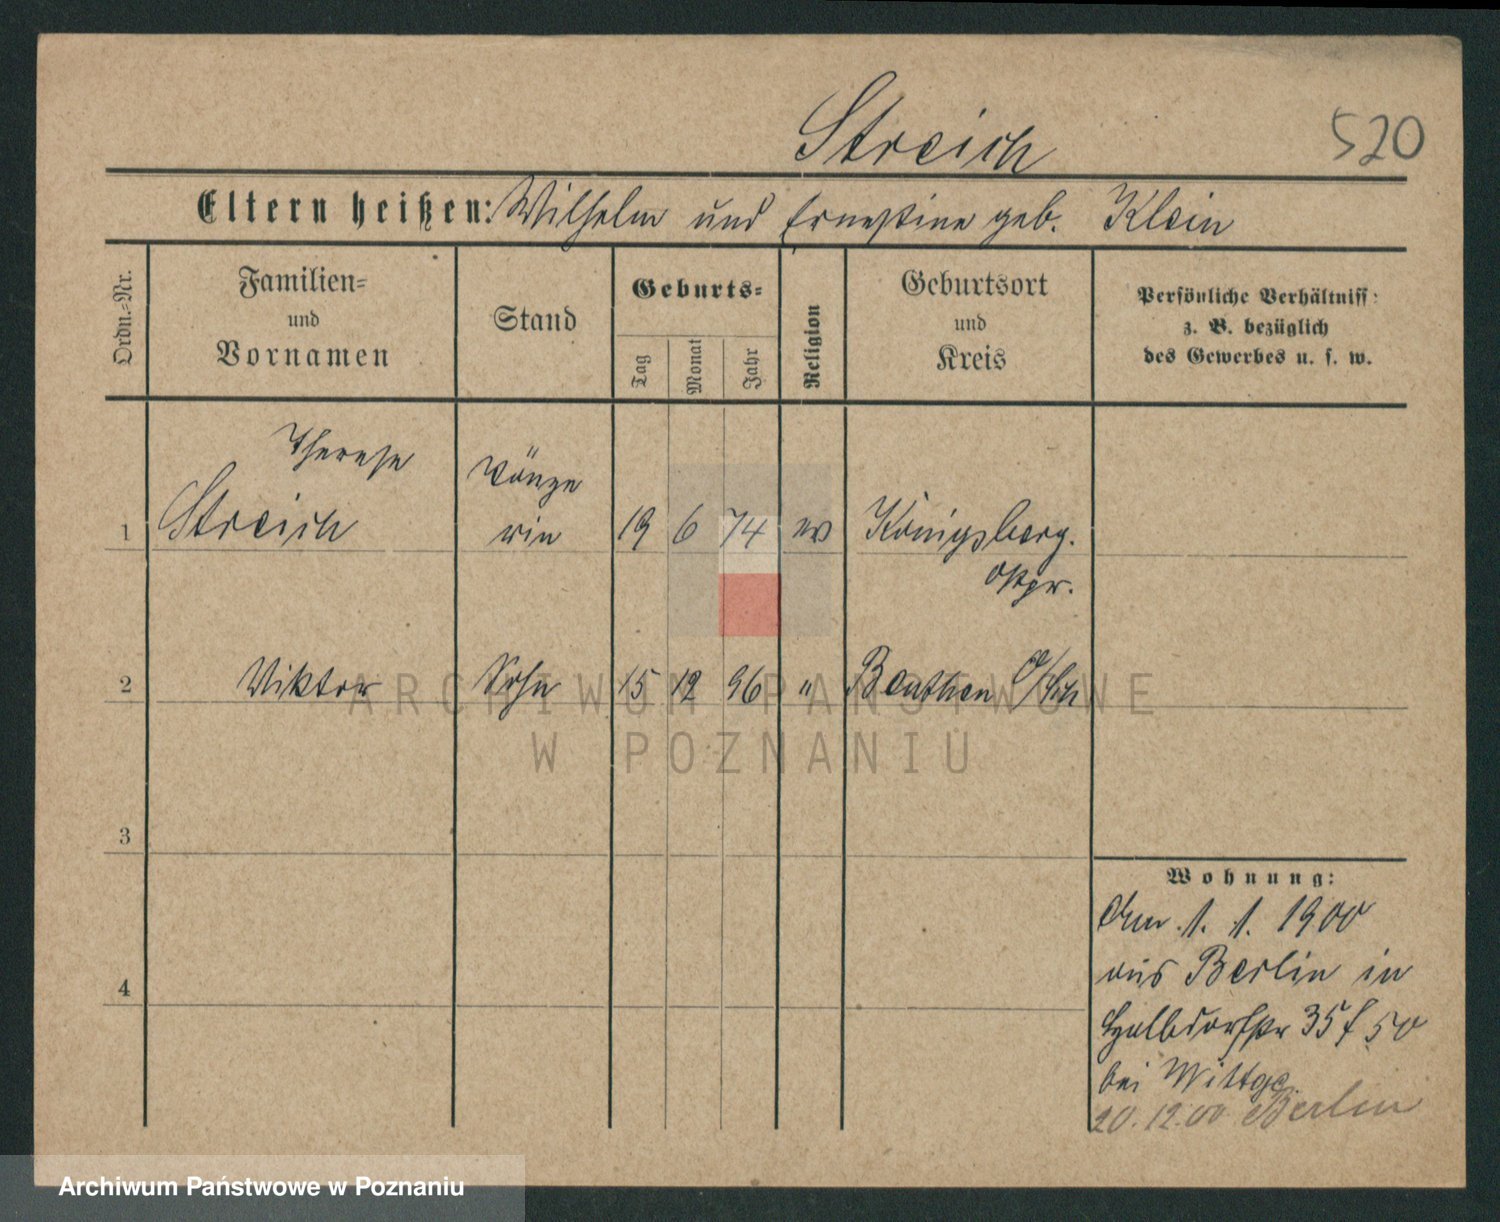 Streich
520
Eltern heißen: Wilhelm und Ernestine geb. Klein
Ordn.-Nr.
Familien-
und
Vornamen
Stand
Geburts-
Tag
Monat
Jahr
Religion
Geburtsort
und
Kreis
Persönliche Verhältniss
z. B. bezüglich
des Gewerbes u. s. w.
Therese
1 Streich
rin 19 6 74 ev Königsberg.
Ostpr.
2 Viktor Sohn 15 12 96 " Beuthen O/Sch
ARCHIWUM PAŃSTWOWE
W POZNANIU
3
4
Wohnung:
1. 1. 1900
aus Berlin in
Halbdorfstr 35 50
bei Wittge
20.12.00 Berlin
Archiwum Państwowe w Poznaniu